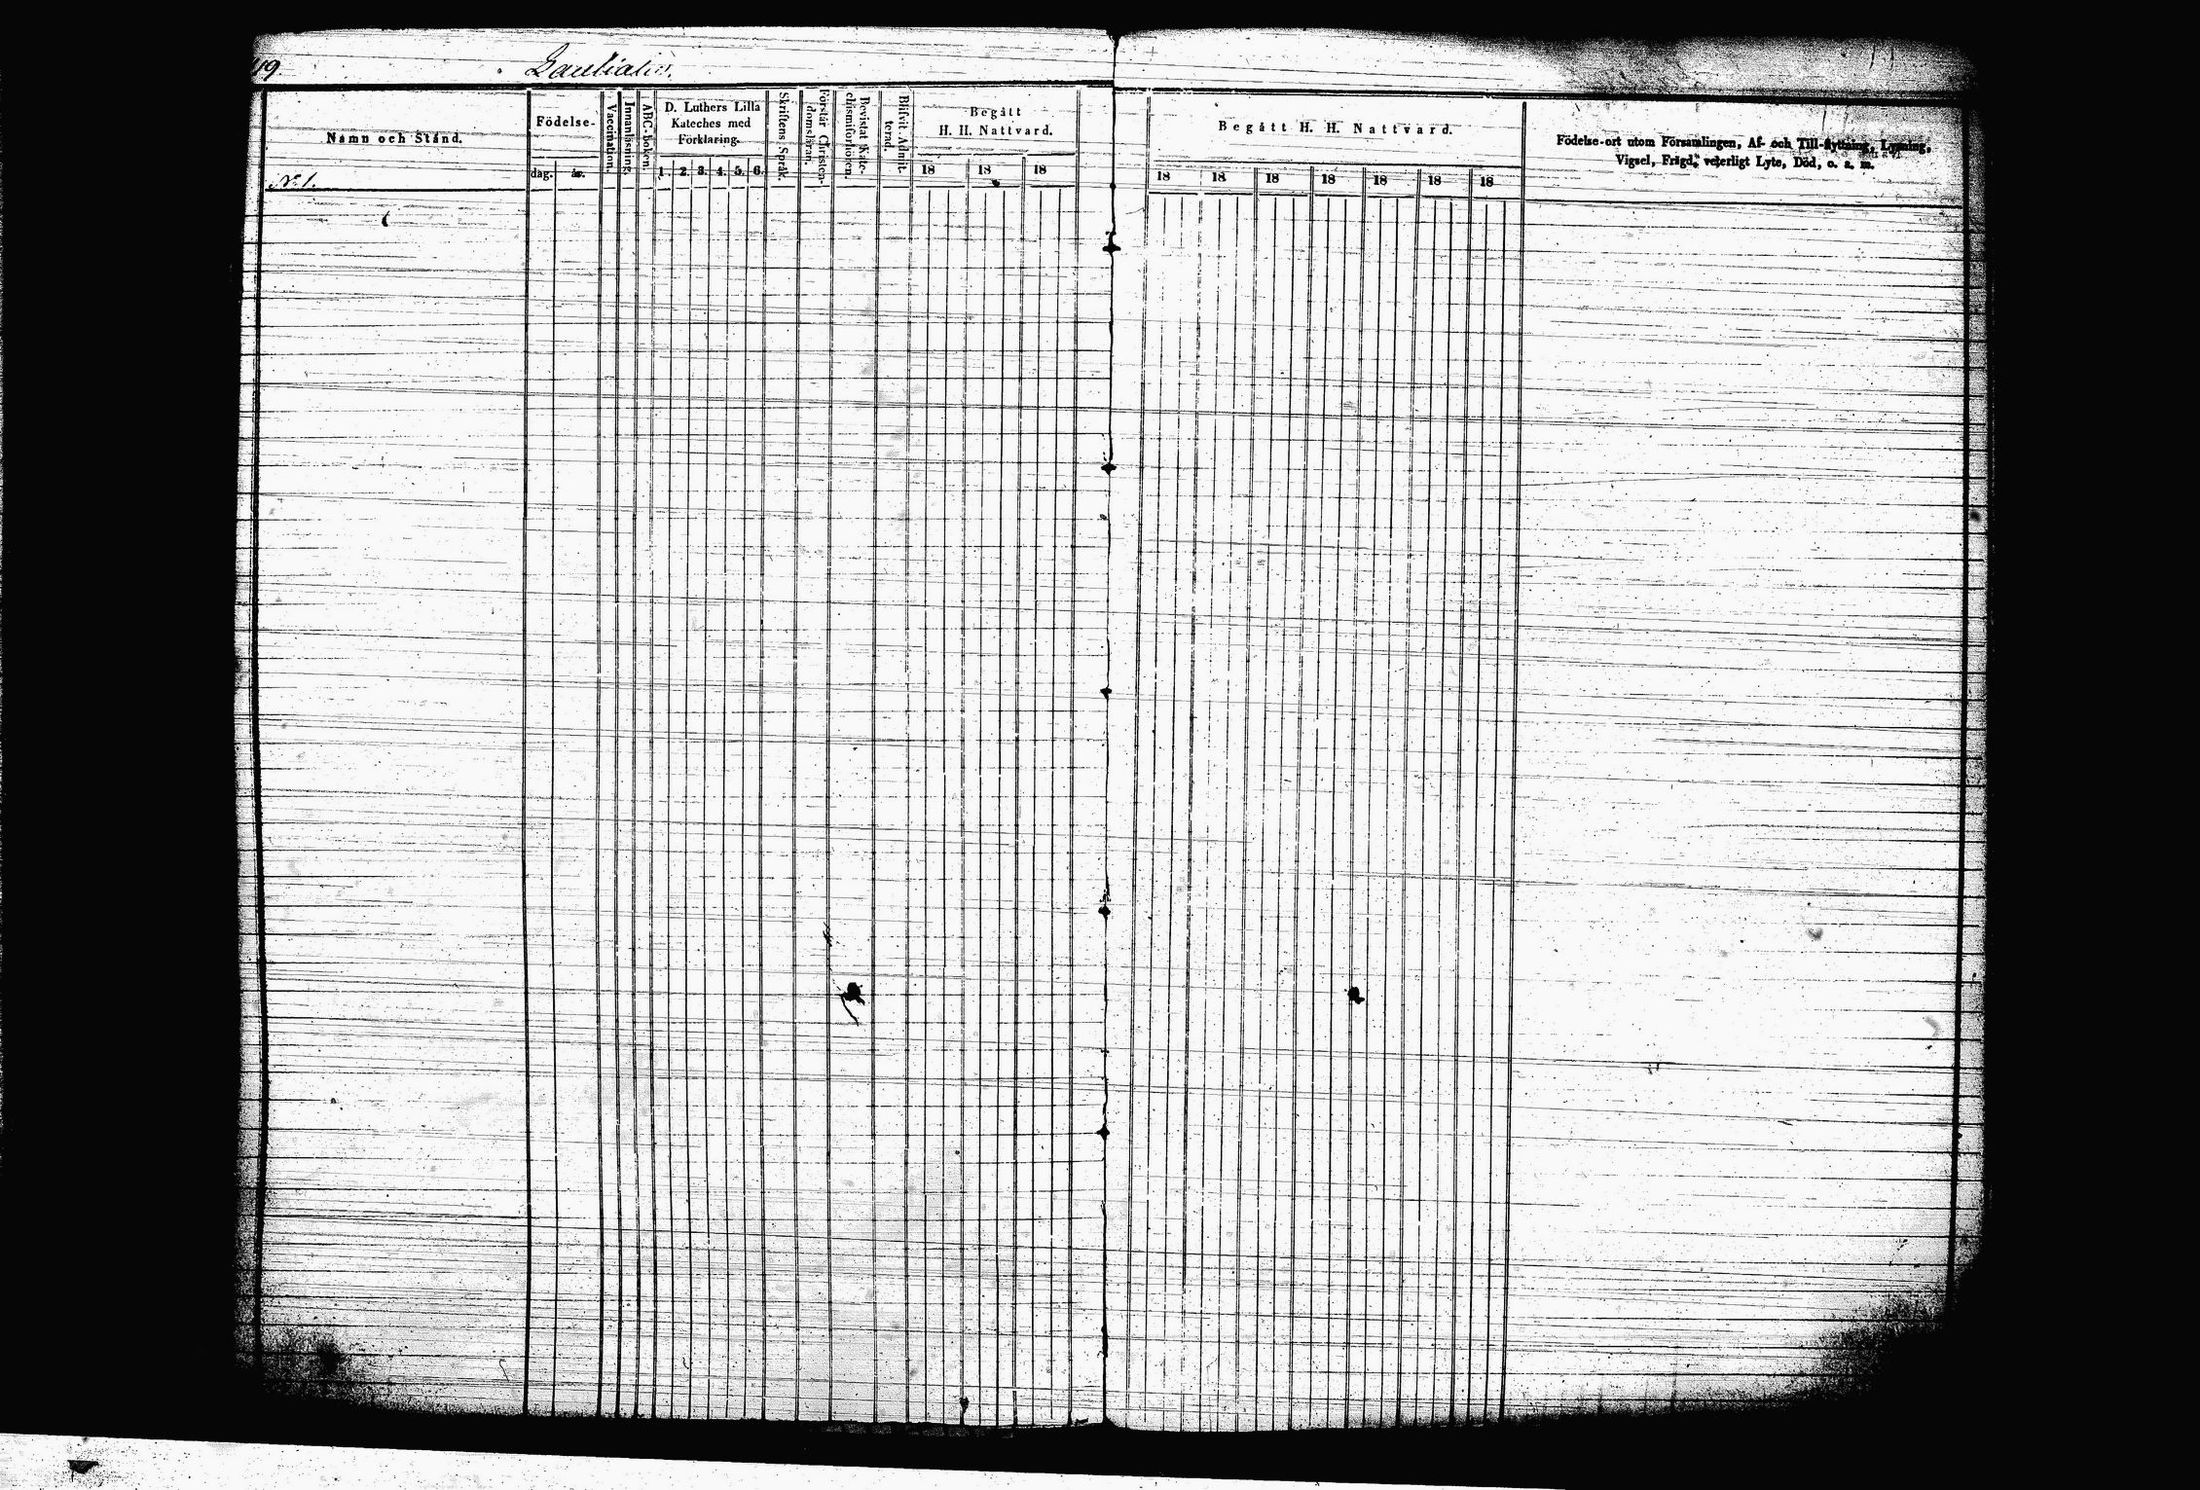 19.
Namn och Stånd.
Födelse-
dag.
år.
Vaccination.
Innanläsning.
ABC-boken.
D. Luthers Lilla
Kateches med
Förklaring.
1. 2. 3. 4. 5. 6.
Skriftens Språk.
Förstår Christen-
domsläran.
Bevistat Kate-
chismiförhören.
Blifvit Admit-
terad.
Begått
H. H. Nattvard.
18 18 18
N:o 1.
Begått H. H. Nattvard.
18 18 18 18 18 18 18
Födelse-ort utom Församlingen, Af- och Till-flyttning, Lysning,
Vigsel, Frägd, veterligt Lyte, Död, o. s. m.